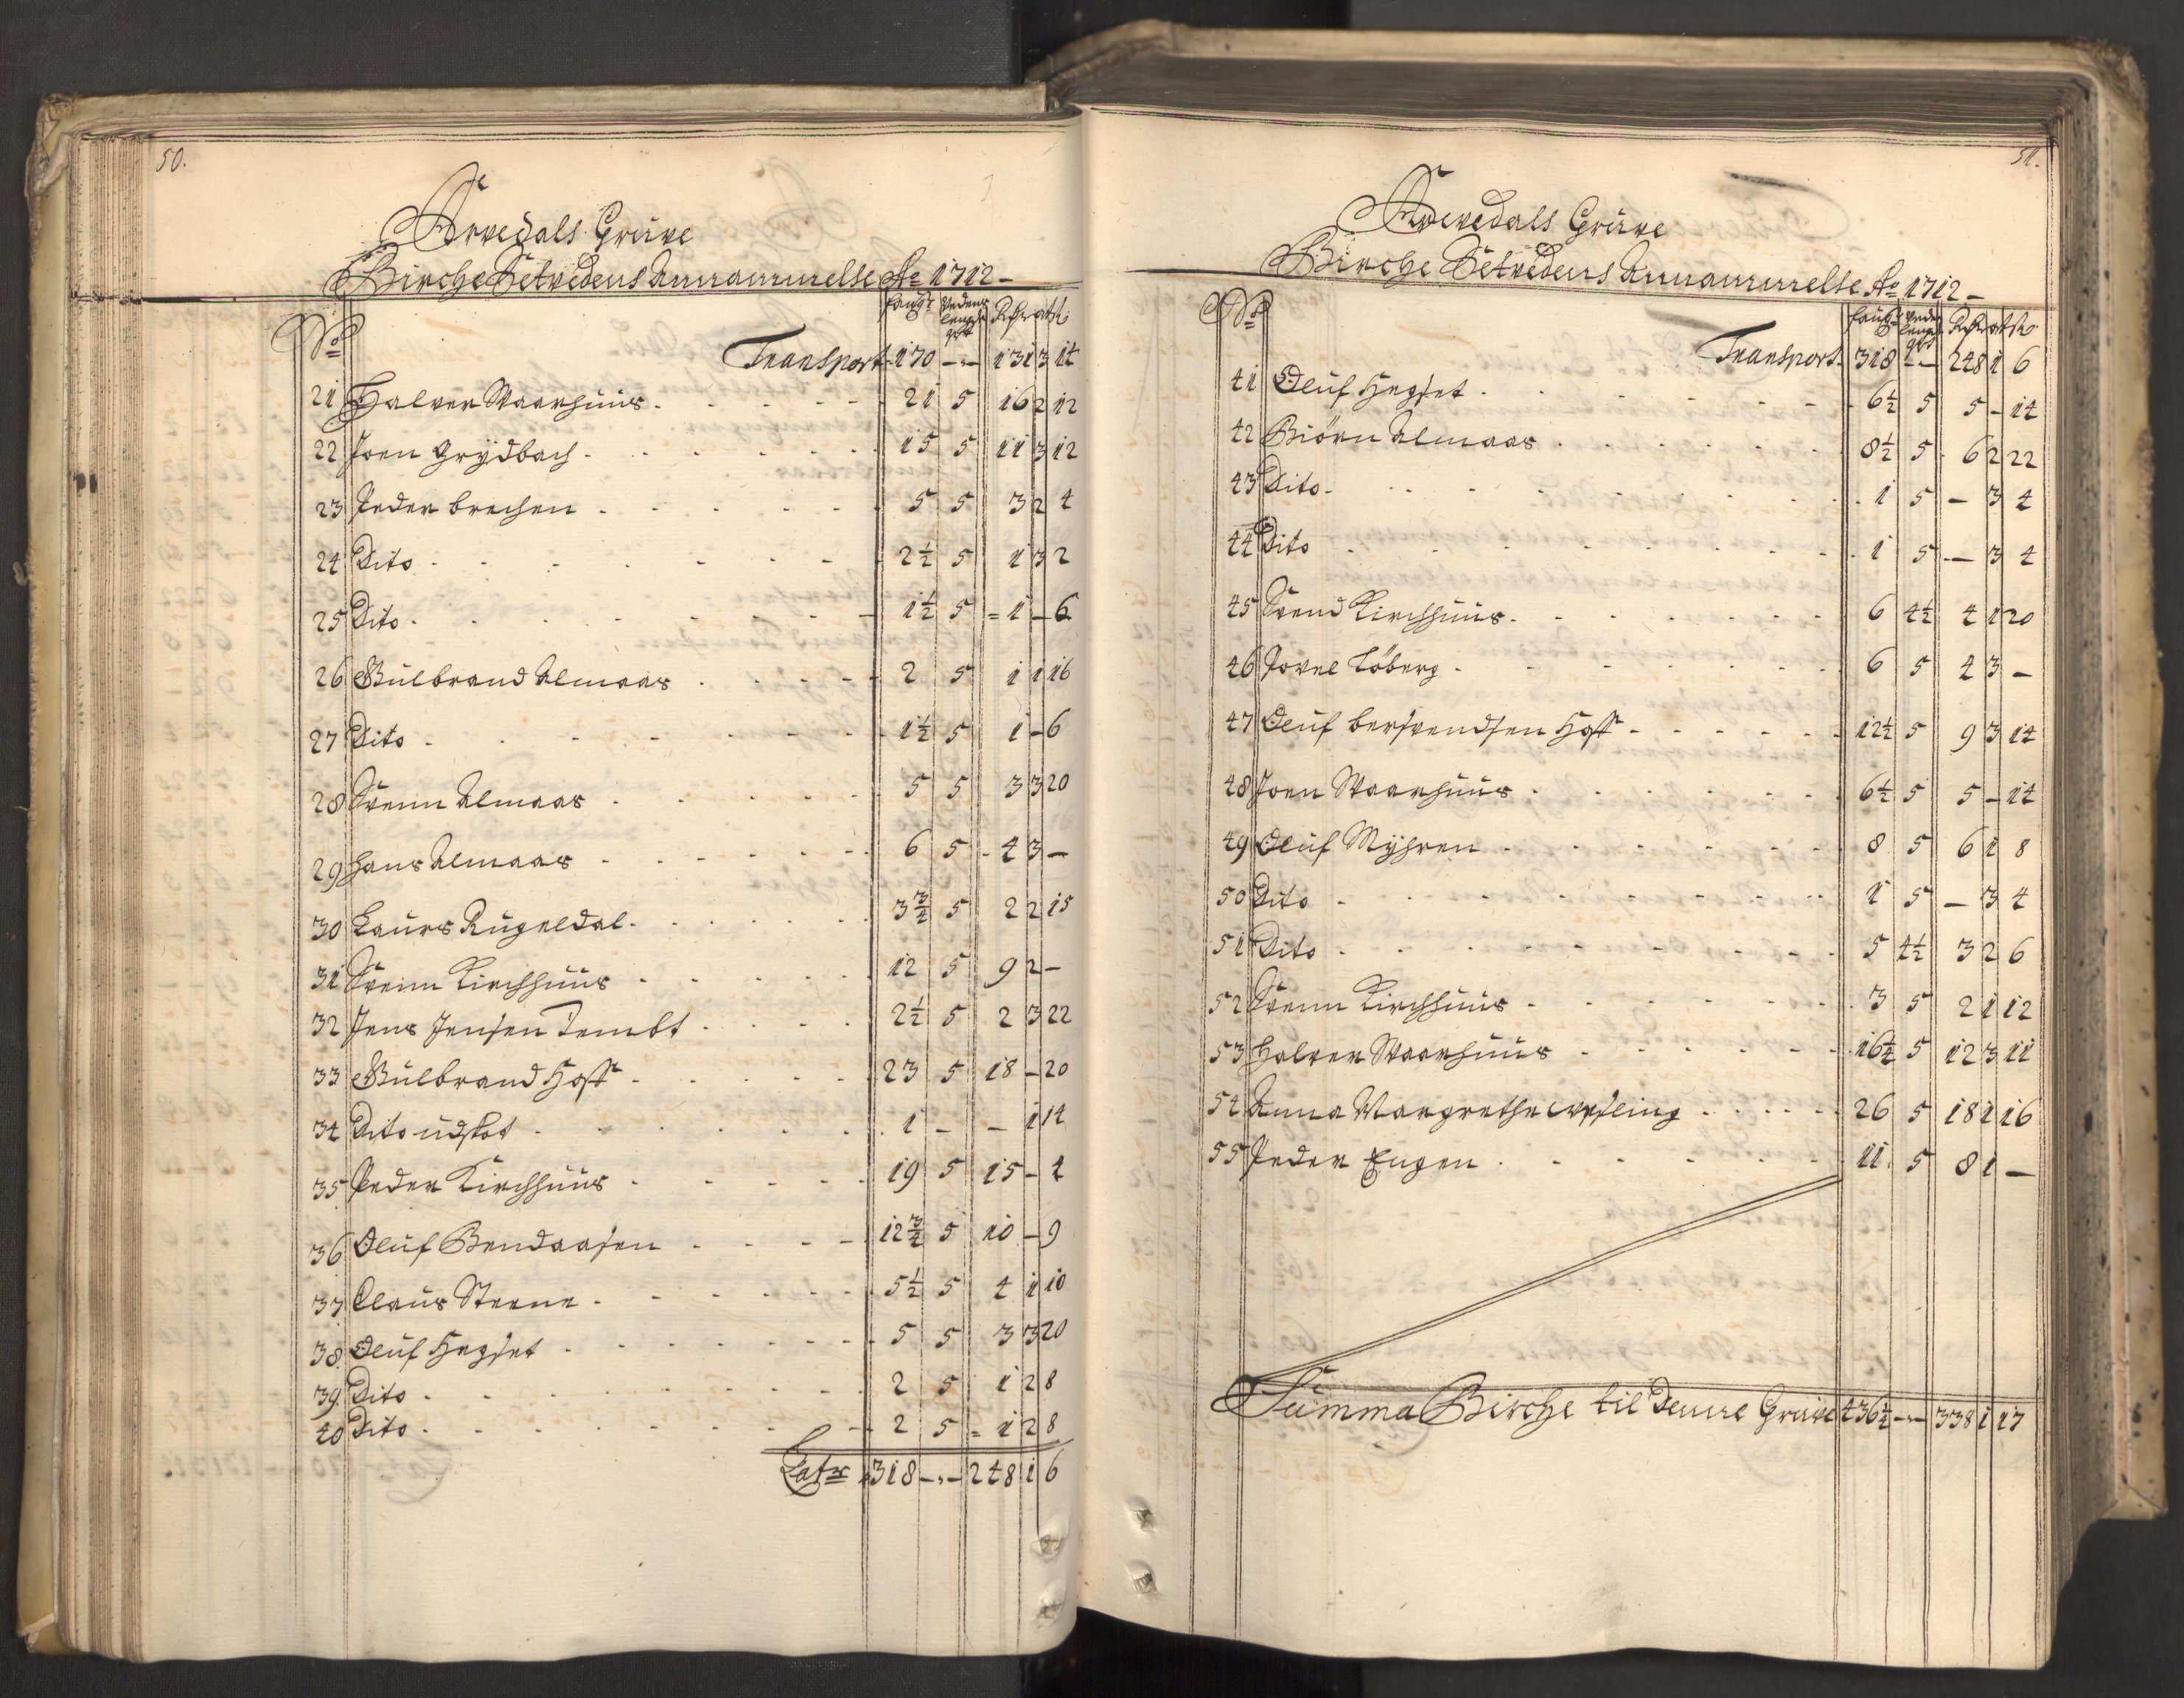 50.
Arvedals Grüve
Birche Setvedens Annammelse Ao 1712
No fauge Vedens lengde qrt Rdr ort s
Transport 170 -"- 131 3 14
21 Halver Waarhuus 21 5 16 2 12
22 Joen Grydbach 15 5 11 3 12
23 Peder brechen 5 5 3 2 4
24 Dito 2½ 5 1 3 2
25 Dito 1½ 5 1 - 6
26 Gulbrand Almaas 2 5 1 1 16
27 Dito 1½ 5 1 - 6
28 Svenn Almaas 5 5 3 3 20
29 Hans Almaas 6 5 4 3 -
30 Laurs Rugeldal 3¾ 5 2 2 15
31 Svenn Kirchhuus 12 5 9 2 -
32 Jens Jensen Tembt 2½ 5 2 3 22
33 Gulbrand Hoff 23 5 18 - 20
34 Dito udskot 1 - - 1 14
35 Peder Kirchhuus 19 5 15 - 4
36 Oluf Bendaasen 12¾ 5 10 - 9
37 Claus Steene 5½ 5 4 1 10
38 Oluf Hegset 5 5 3 3 20
39 Dito 2 5 1 2 8
40 Dito 2 5 1 2 8
Latr 318 -"- 248 1 6
51.
Arvedals Grüve
Birche Setvedens Annammelse Ao 1712
No fauge Veden lengd qrt Rdr ort s
Transport 318 -- 248 1 6
41 Oluf Hegset 6½ 5 5 - 14
42 Biörn Almaas 8½ 5 6 2 22
43 Dito 1 5 - 3 4
44 Dito 1 5 - 3 4
45 Svend Kirchhuus 6 4½ 4 1 20
46 Povel Löberg 6 5 4 3 -
47 Oluf bersvendsen Hoff 12½ 5 9 3 14
48 Joen Waarhuus 6½ 5 5 - 14
49 Oluf Myhren 8 5 6 1 8
50 Dito 1 5 - 3 4
51 Dito 5 4½ 3 2 6
52 Svenn Kirchhuus 3 5 2 1 12
53 Halver Waarhuus 16¼ 5 12 3 11
54 Anna Margrethe 26 5 18 1 16
55 Peder Engen 11 5 8 1 -
Summa Birche til denne Gruve 436¼ -"- 338 1 17